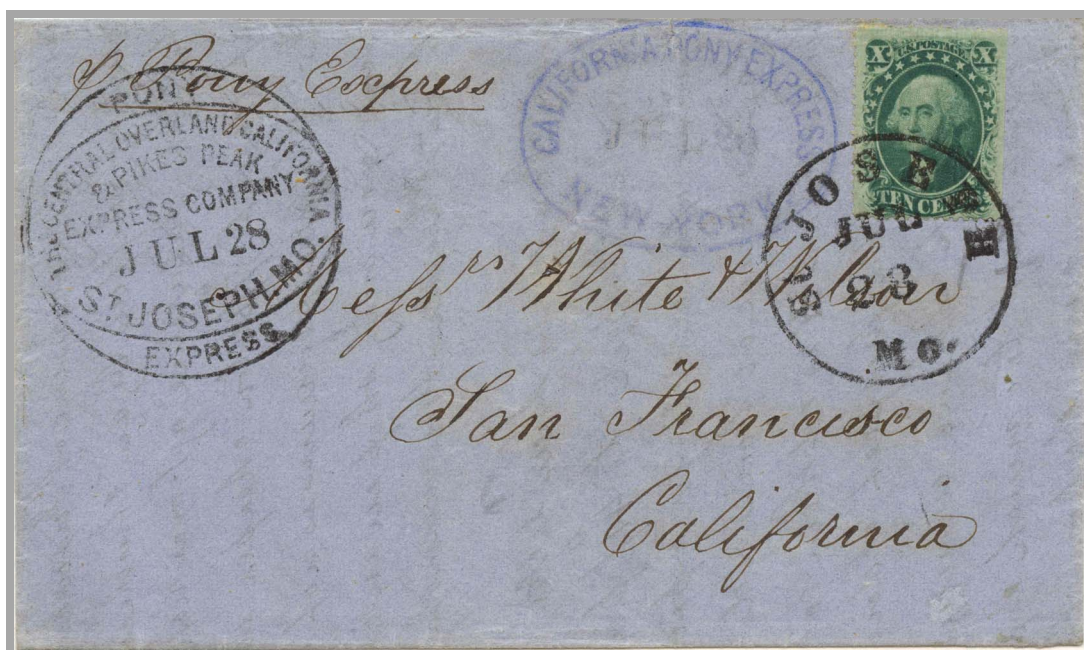 p. Pony Express
PONY
THE CENTRAL OVERLAND CALIFORNIA
& PIKES PEAK
EXPRESS COMPANY
JUL 28
ST JOSEPH, MO.
EXPRESS
CALIFORNIA PONY EXPRESS
NEW-YORK
X U.S. POSTAGE X
TEN CENTS
ST JOSEPH
JUL
28
Mo.
Messrs White & Wilson
San Francisco
California